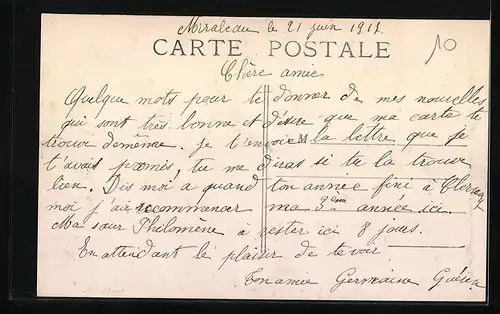 Mirabeau le 21 juin 1917.
CARTE POSTALE
10
Chère amie
Quelque mots pour te donner de mes nouvelles
qui sont très bonne et désire que ma carte te
trouve de même. je t'envoie la lettre que je
t'avais promis, tu me diras si tu la trouve
bien. Dis moi a quand ton année fini à
moi j'ai recommencer ma 3ème année ici.
Ma sœur Philomène a rester ici 8 jours.
En attendant le plaisir de te voir.
Ton amie Germaine Guérin